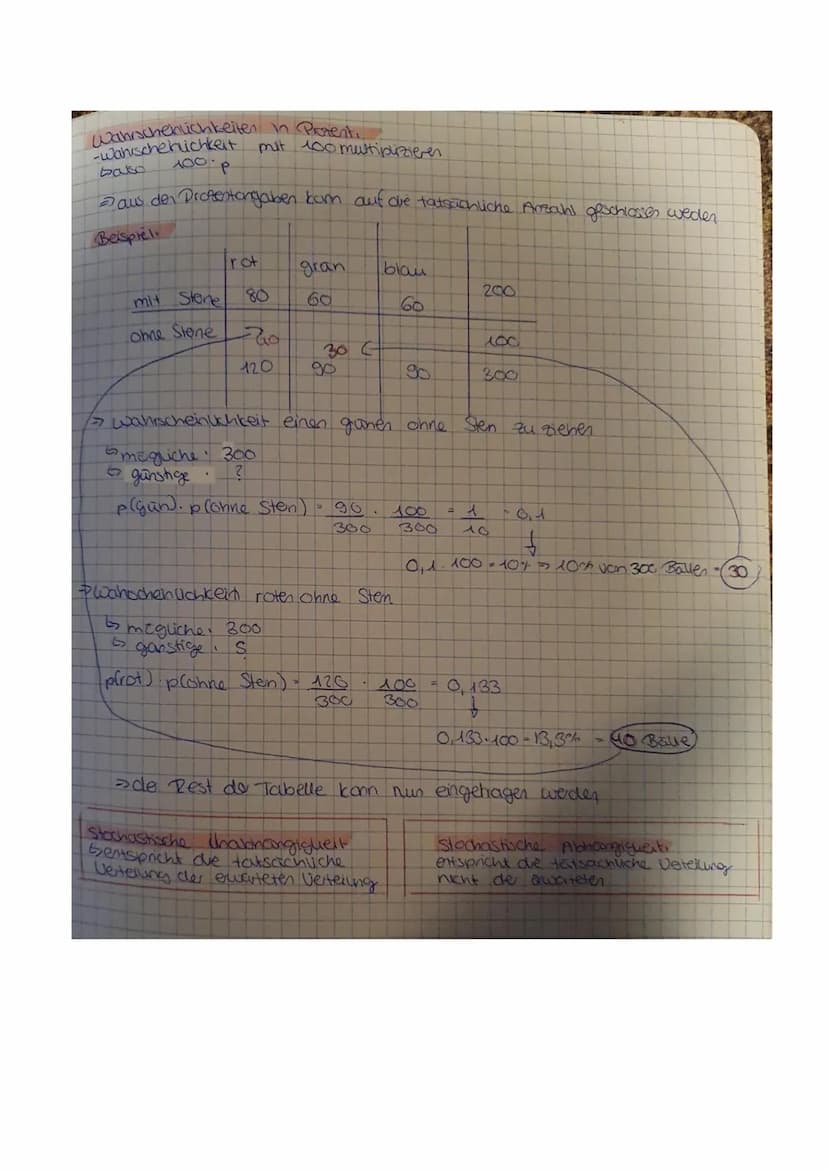 Wahrscheinlichkeiten in Prozent.
-Wahrscheinlichkeit mit 100 multiplizieren
↳ also 100·p
⇒ aus den Prozentangaben kann auf die tatsächliche Anzahl geschlossen werden
Beispiel.
rot grün blau
mit Sterne 80 60 60 200
ohne Sterne 40 30 100
120 90 90 300
⇒ Wahrscheinlichkeit einen grünen ohne Stern zu ziehen
↳ mögliche: 300
↳ günstige: ?
p(grün)·p(ohne Stern) = 90/300 · 100/300 = 1/10 = 0,1
↓
0,1·100=10% ⇒ 10% von 300 Bällen = 30
⇒ Wahrscheinlichkeit roten ohne Stern
↳ mögliche: 300
↳ günstige:
p(rot)·p(ohne Stern) = 120/300 · 100/300 = 0,133
↓
0,133·100 = 13,3% = 40 Bälle
⇒ der Rest der Tabelle kann nun eingetragen werden
Stochastische Unabhängigkeit
↳ entspricht die tatsächliche
Verteilung der erwarteten Verteilung
Stochastische Abhängigkeit.
entspricht die tatsächliche Verteilung
nicht der erwarteten